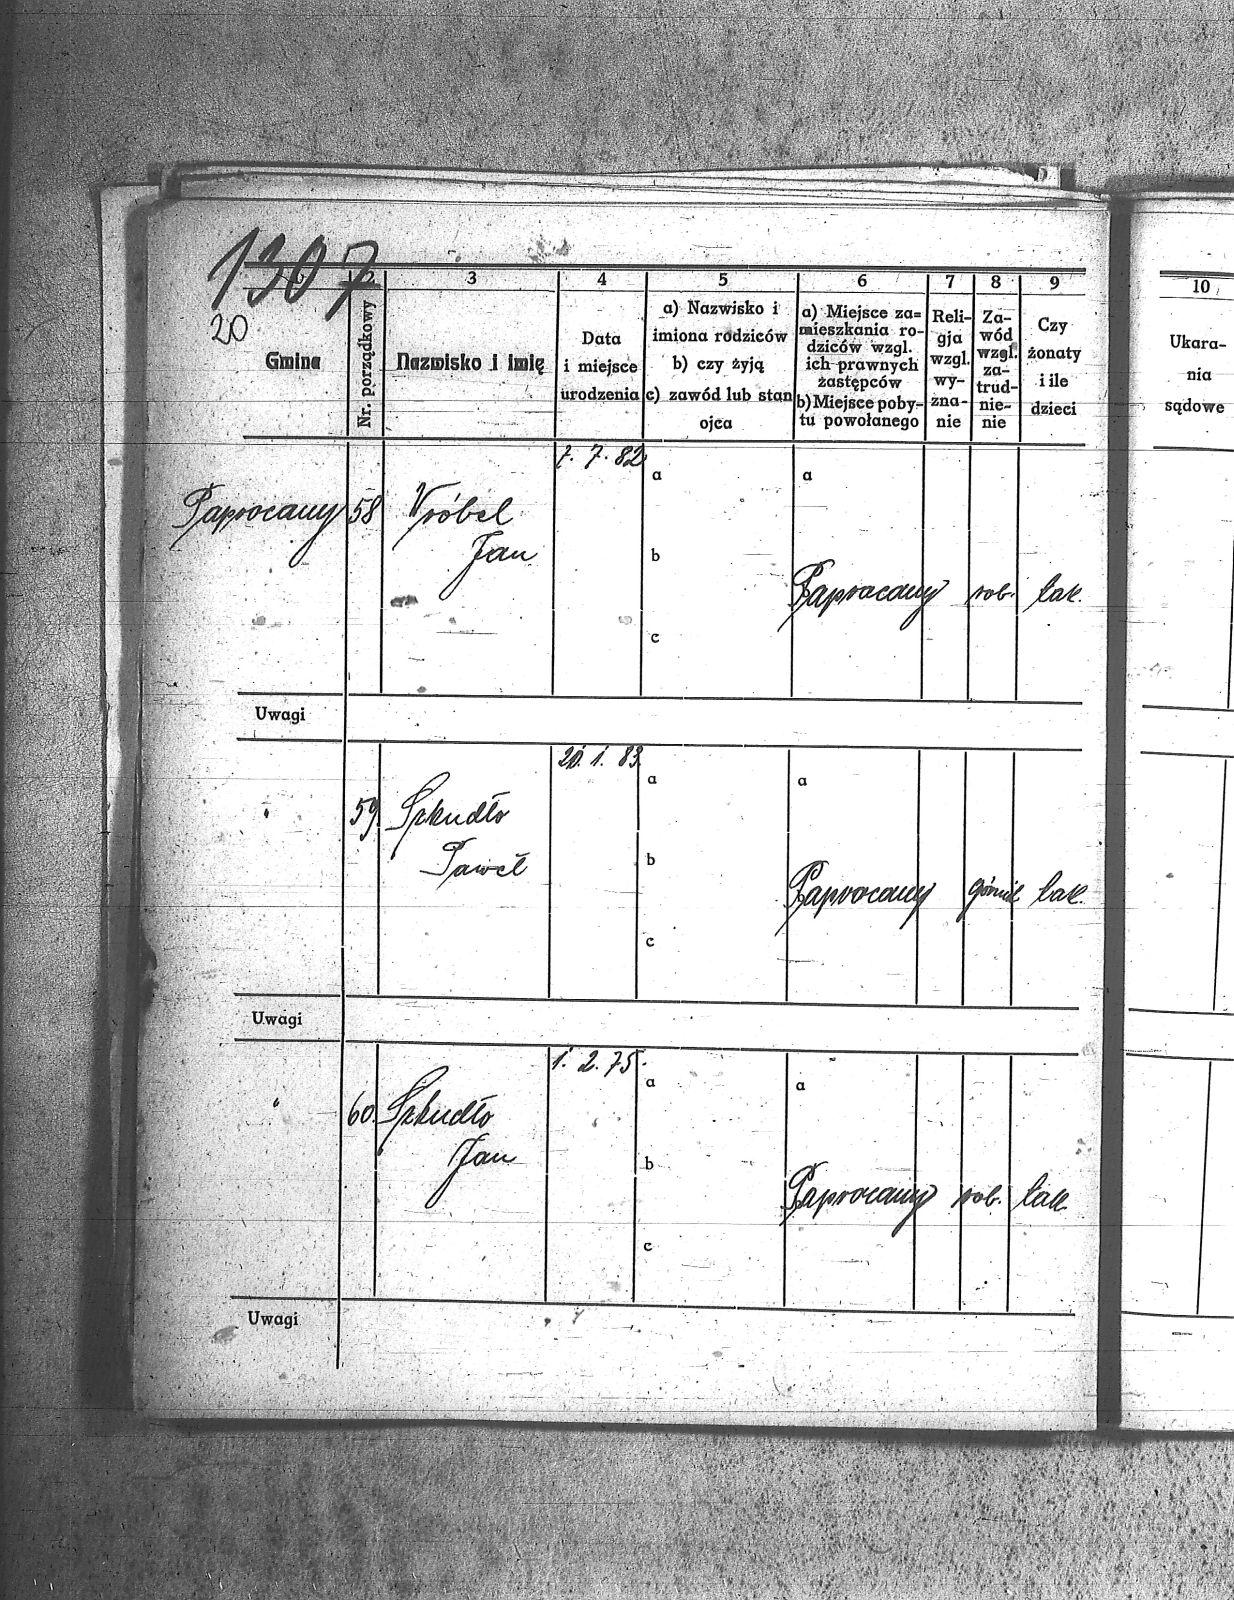 1307
20
1 2 3 4 5 6 7 8 9 10
Gmina
Nr. porządkowy
Nazwisko i imię
Data
i miejsce
urodzenia
a) Nazwisko i
imiona rodziców
b) czy żyją
c) zawód lub stan
ojca
a) Miejsce za=
mieszkania ro-
dziców wzgl.
ich prawnych
zastępców
b) Miejsce poby-
tu powołanego
Reli-
gja
wzgl.
wy-
zna-
nie
Za-
wód
wzgl.
za-
trud-
nie-
nie
Czy
żonaty
i ile
dzieci
Ukara-
nia
sądowe
7. 7. 82
a a
Paprocany 58 Wróbel
Jan
b
Paprocany rob. tak.
c
Uwagi
20. 1. 83.
a a
" 59. Szkudło
Paweł
b
Paprocany górnik tak.
c
Uwagi
1. 2. 75.
a a
" 60. Szkudło
Jan
b
Paprocany rob. tak.
c
Uwagi